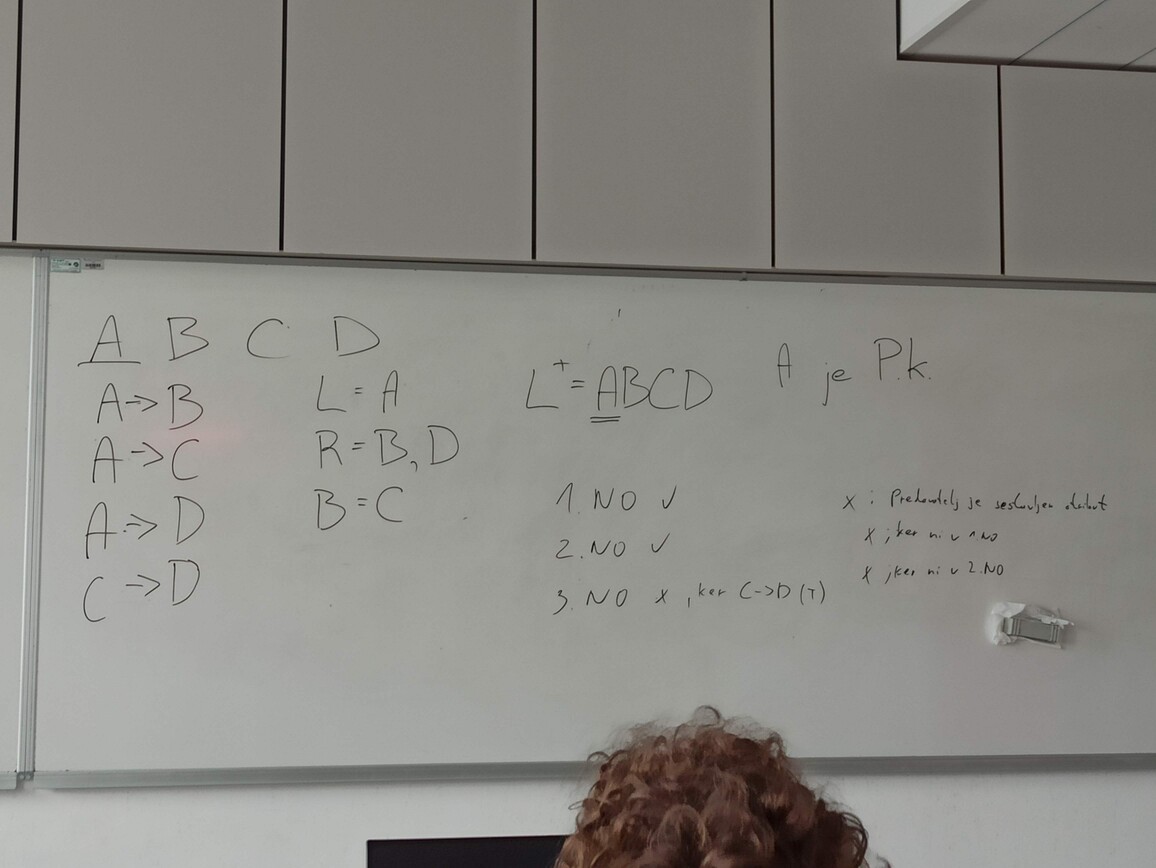 A B C D
A->B
A->C
A->D
C->D
L = A
R = B, D
B = C
L⁺ = ABCD
A je P.k.
1. NO ✓
2. NO ✓
3. NO x, ker C->D (T)
x : je sestavljen atribut
x ; ker ni v 1 NO
x ; ker ni v 2. NO